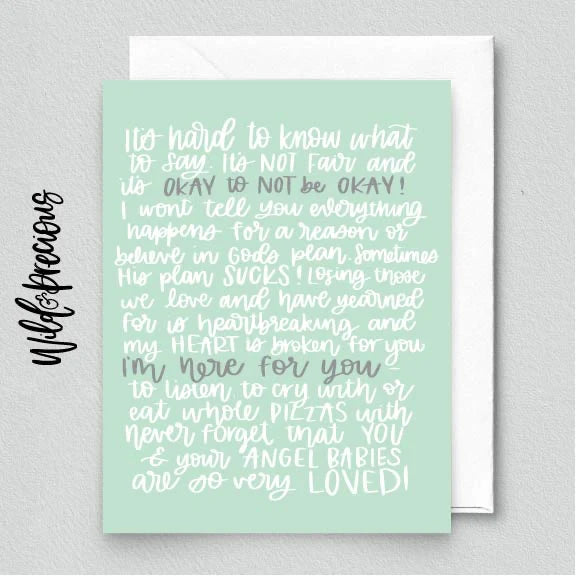 Wild & Precious
It's hard to know what
to say. It's NOT Fair and
it's OKAY to NOT be OKAY!
I wont tell you everything
happens for a reason or
believe in Gods plan. Sometimes
His plan SUCKS! Losing those
we love and have yearned
for is heartbreaking and
my HEART is broken for you
I'm here for you -
to listen, to cry with or
eat whole PIZZAS with
never forget that YOU
& your ANGEL BABIES
are so very LOVED!